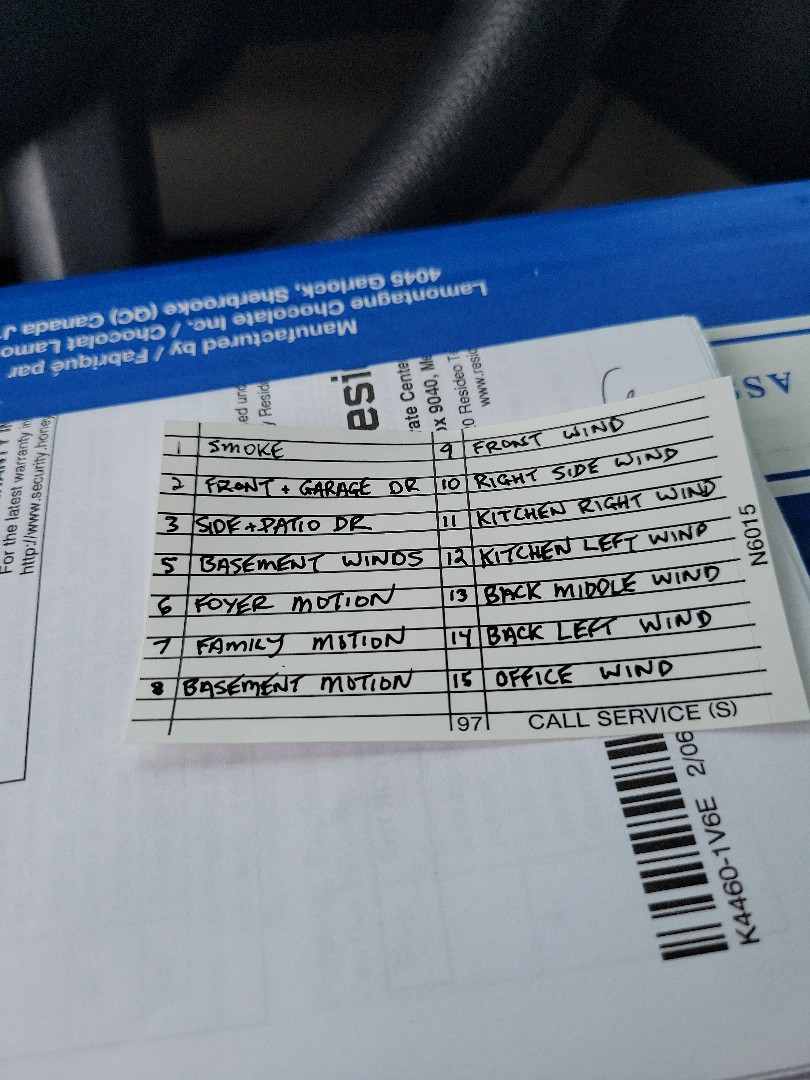 Lamontagne Chocolate Inc. / Chocolat Lamo
4045 Garlock, Sherbrooke (QC) Canada J
Manufactured by / Fabriqué par
For the latest warranty in
http://www.security.hone
ed und
/ Resid
esi
ate Cente
ox 9040, Me
0 Resideo T
www.resid
AS
1 SMOKE
2 FRONT + GARAGE DR
3 SIDE + PATIO DR
5 BASEMENT WINDS
6 FOYER MOTION
7 FAMILY MOTION
8 BASEMENT MOTION
9 FRONT WIND
10 RIGHT SIDE WIND
11 KITCHEN RIGHT WIND
12 KITCHEN LEFT WIND
13 BACK MIDDLE WIND
14 BACK LEFT WIND
15 OFFICE WIND
97 CALL SERVICE (S)
N6015
K4460-1V6E 2/06